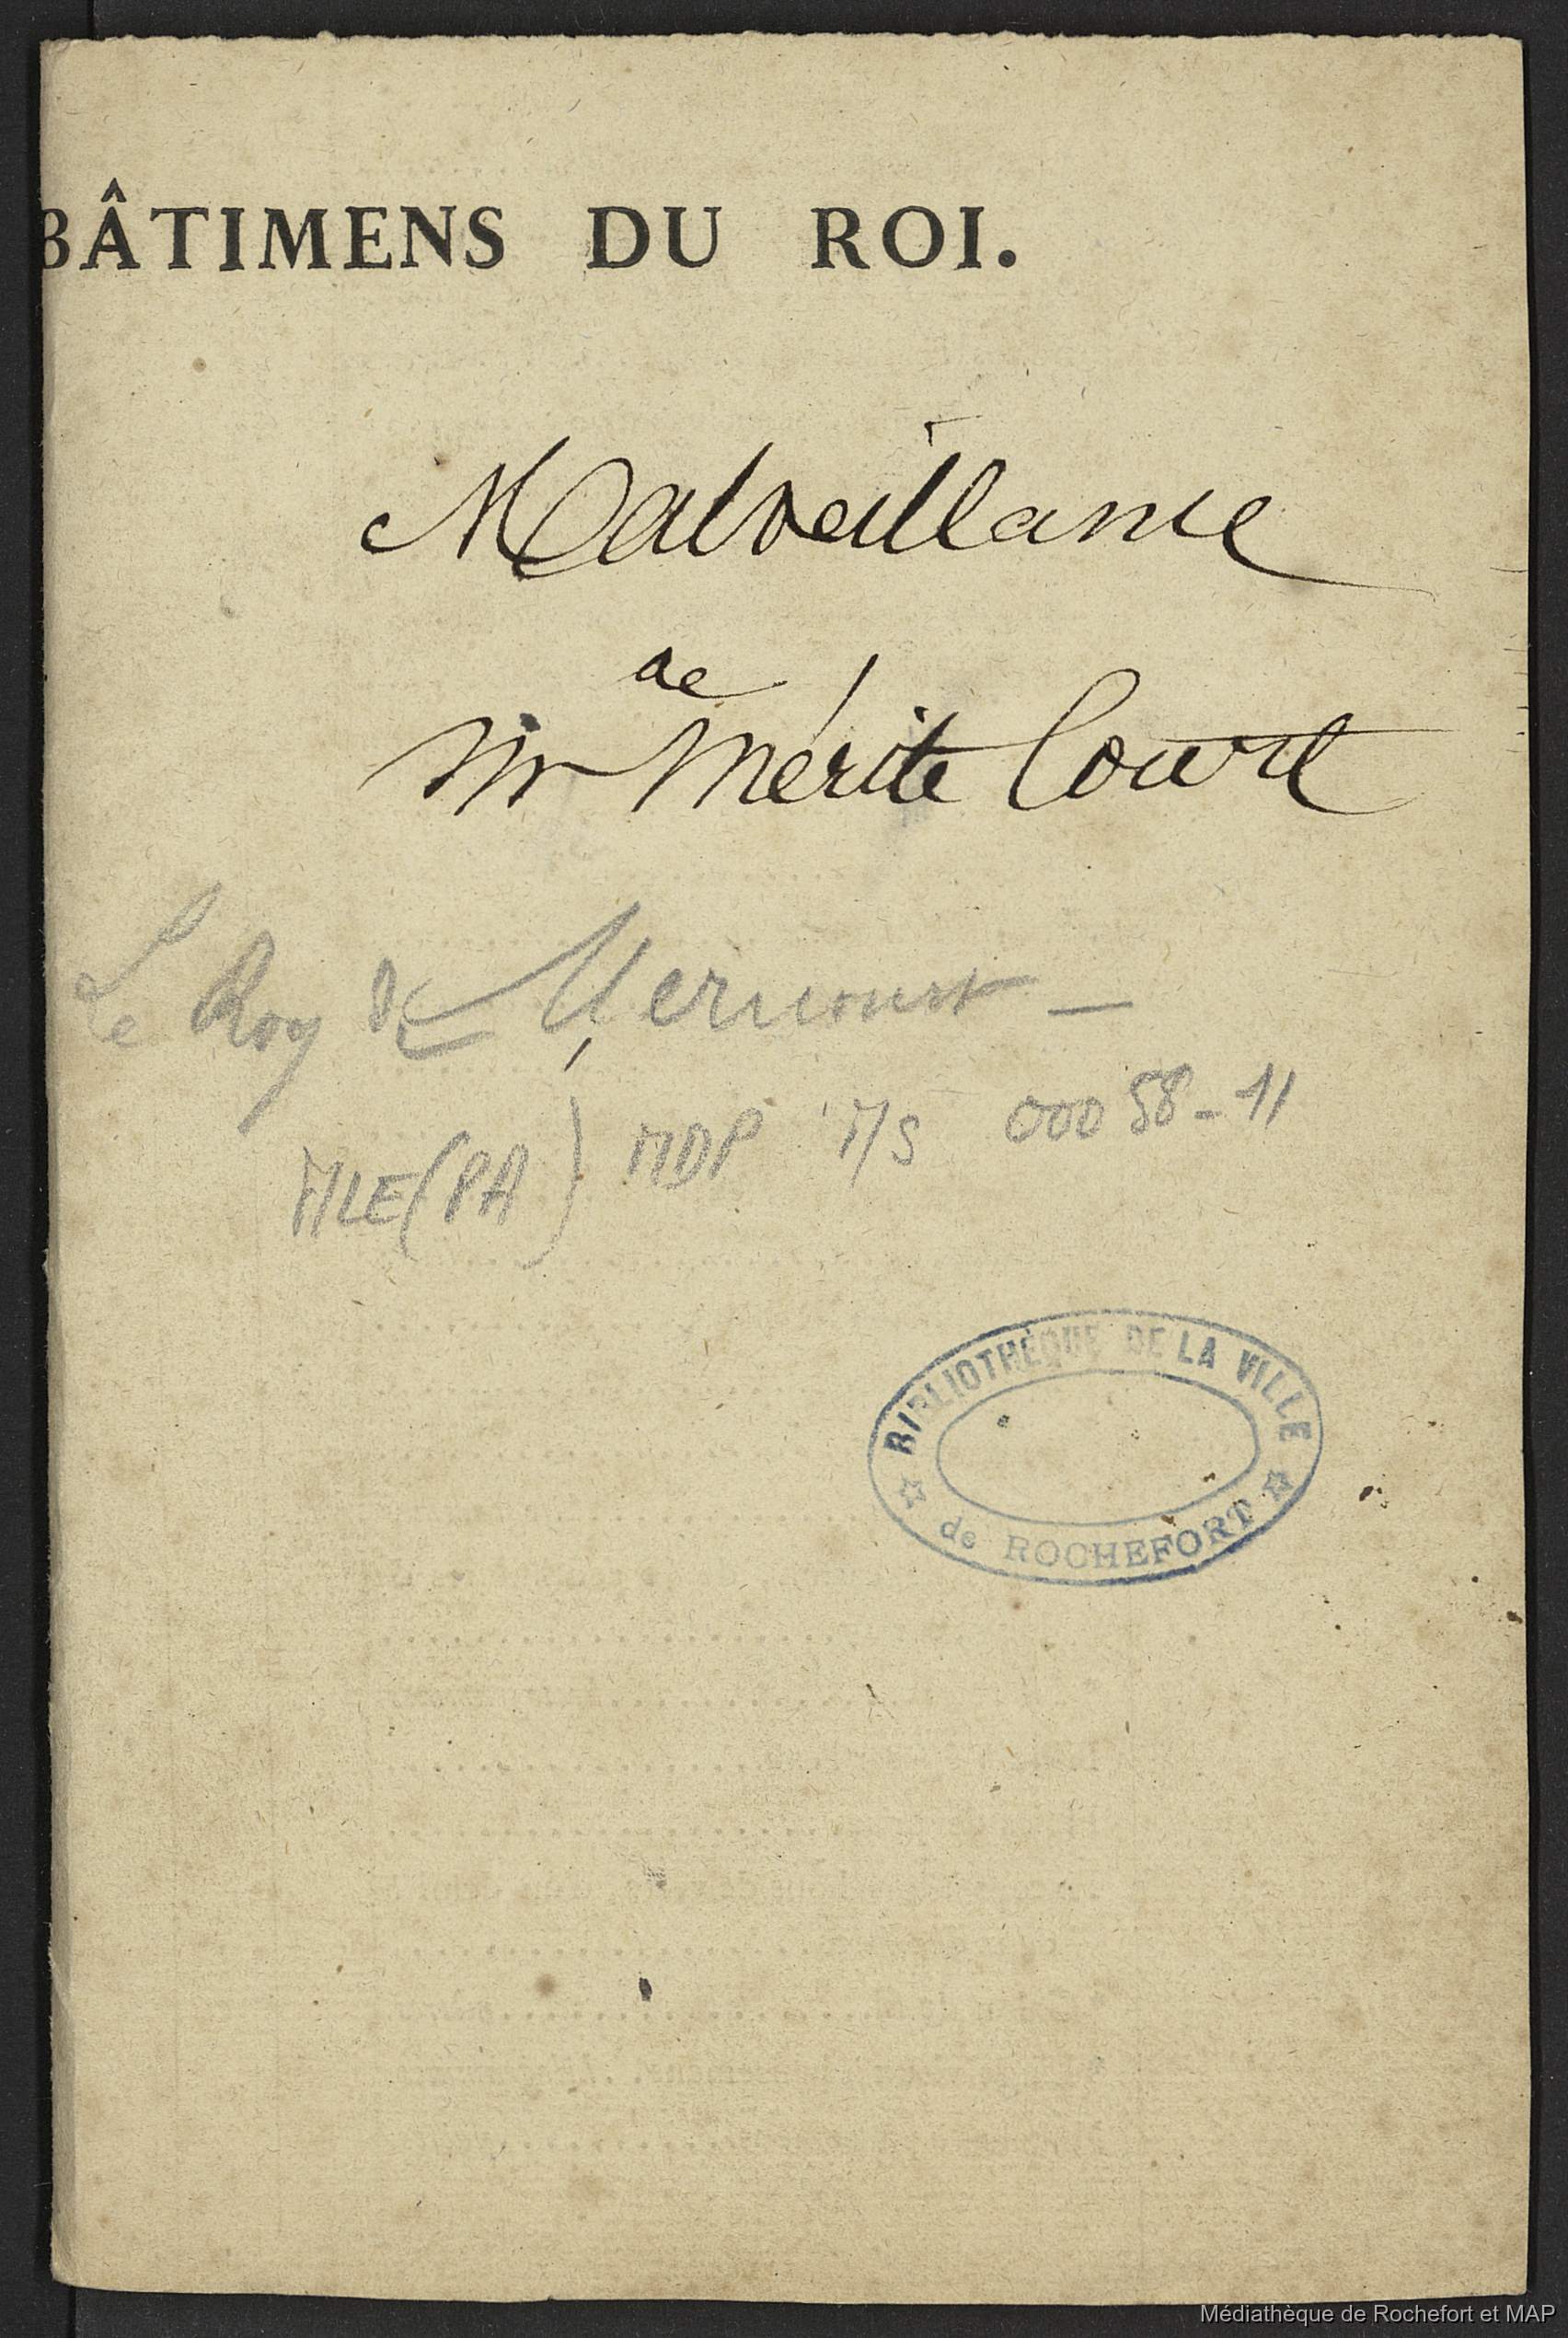 BÂTIMENS DU ROI.
Malveillance
de
Mr Mérite Court
Le Roy de Mericourt —
MLE(PA) MDP MS 00058-11
BIBLIOTHÈQUE DE LA VILLE
de ROCHEFORT
Médiathèque de Rochefort et MAP